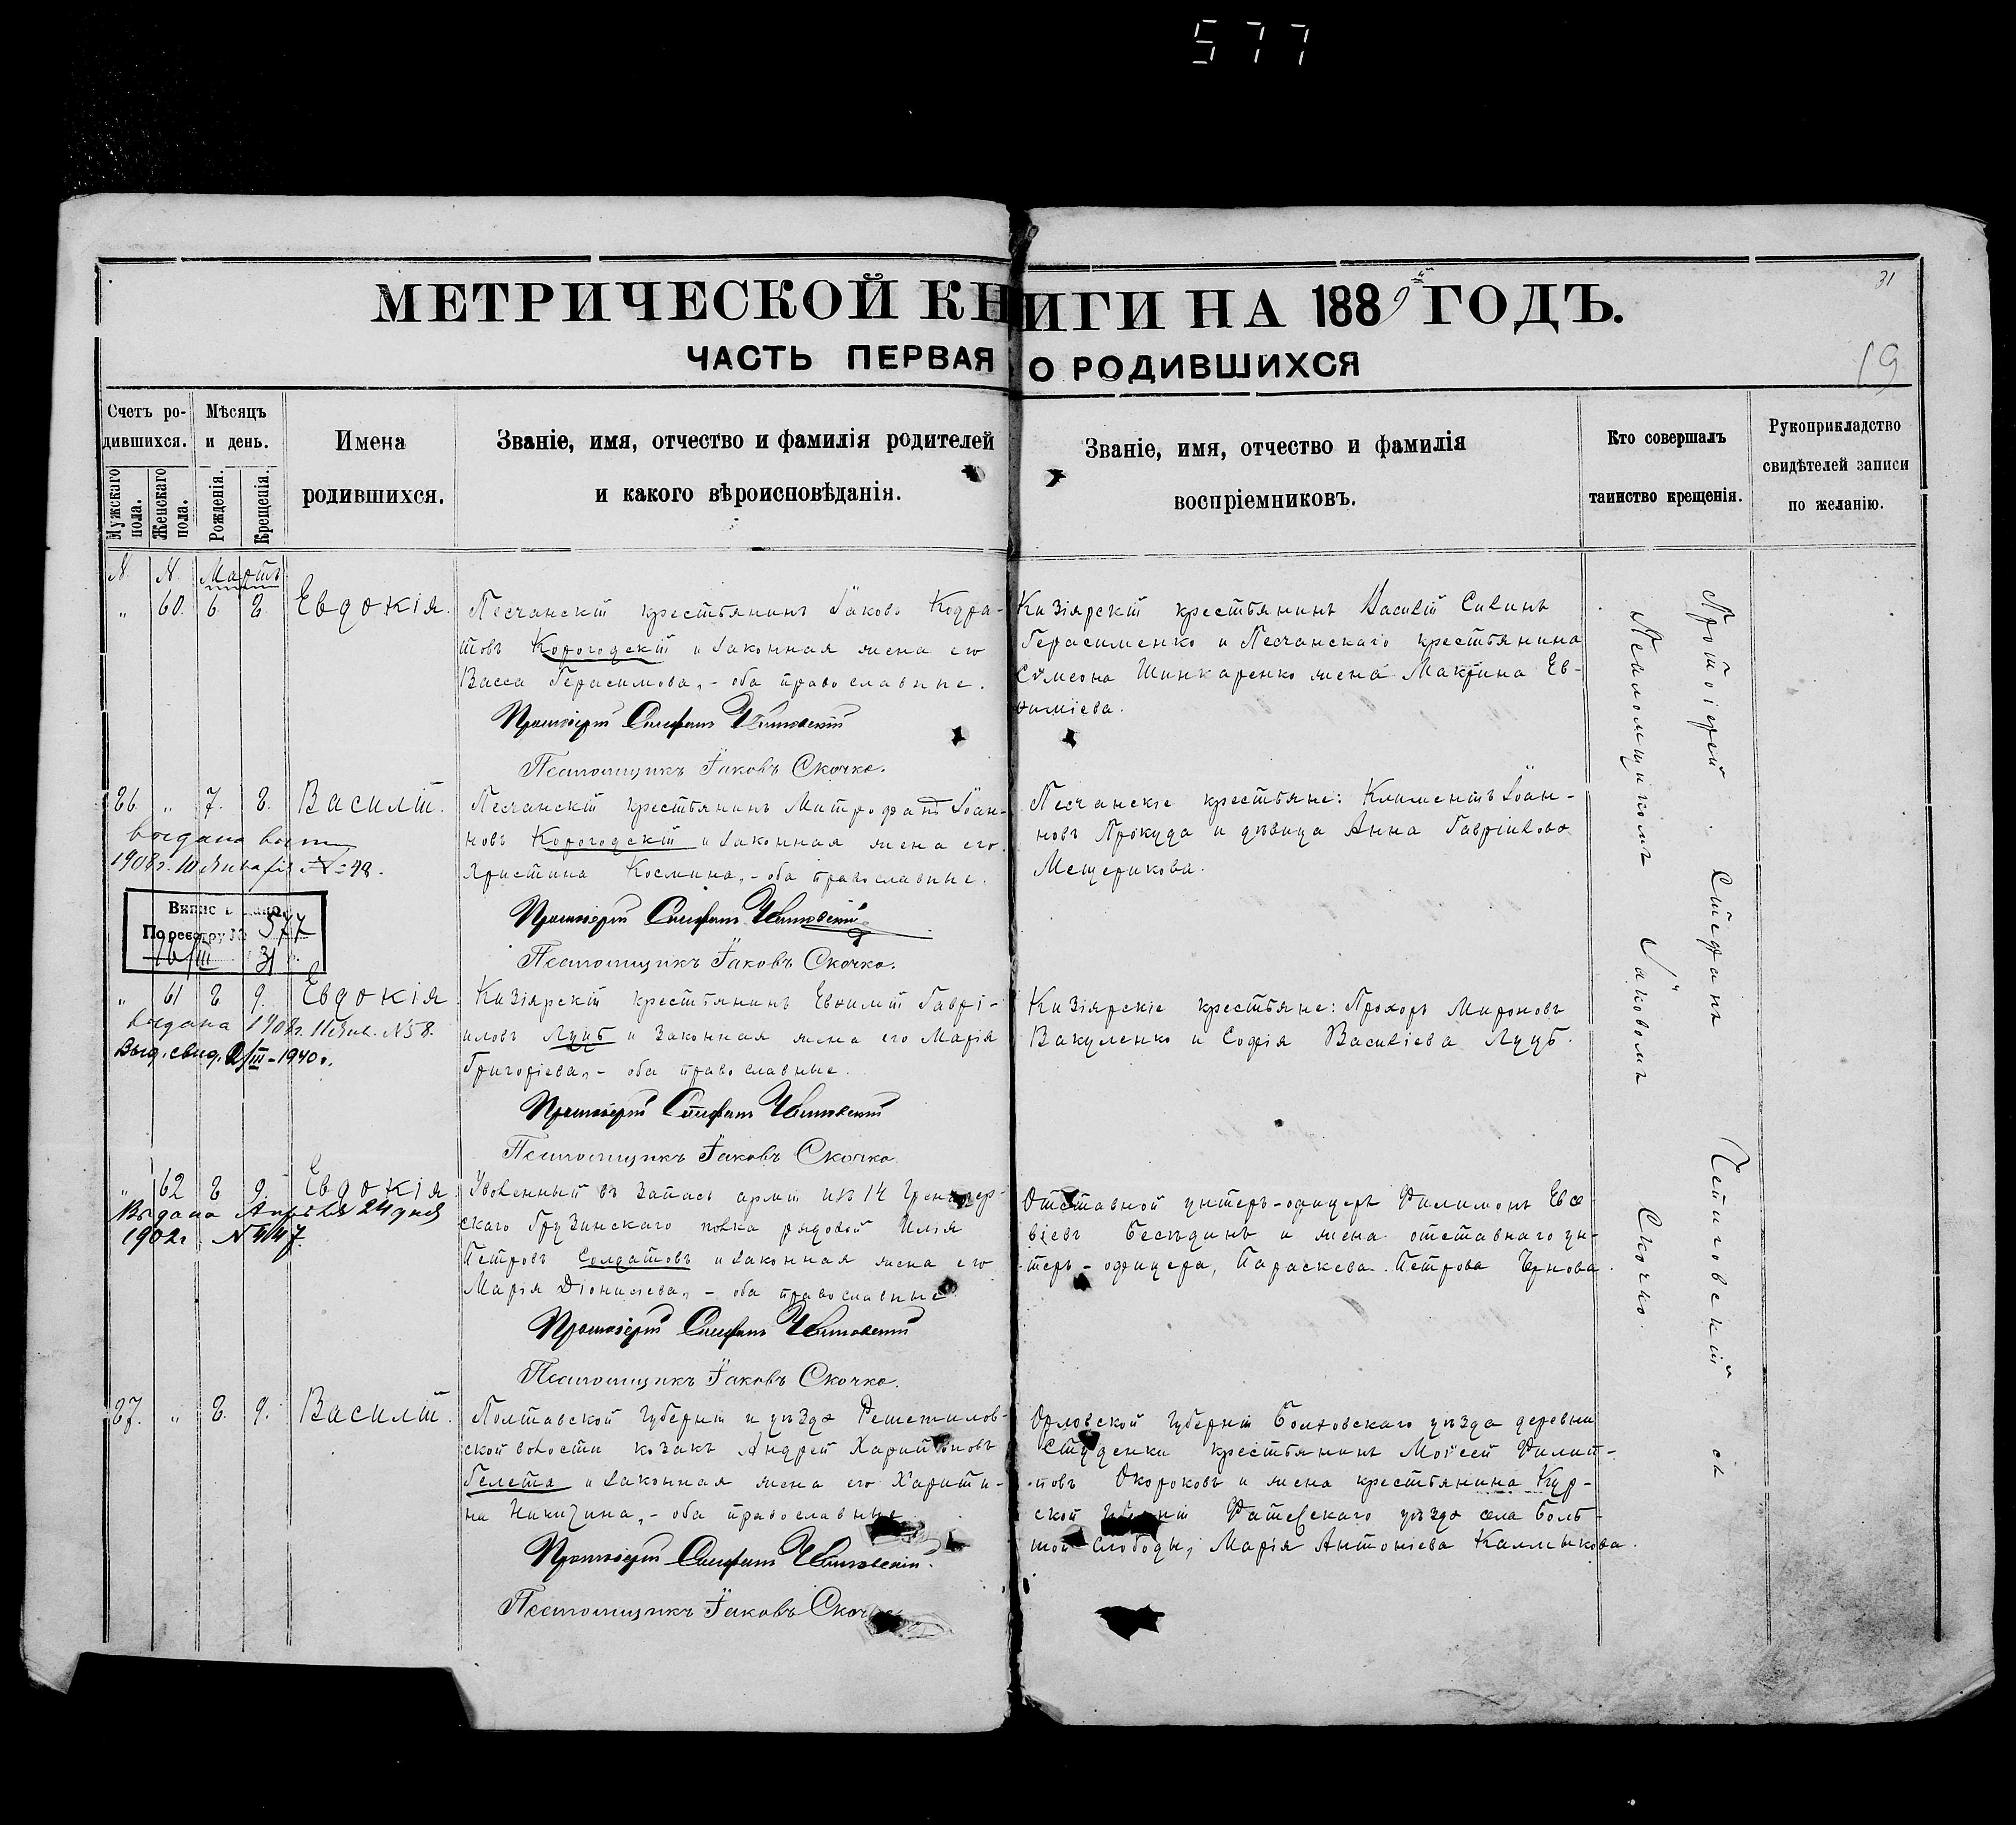 577
МЕТРИЧЕСКОЙ КНИГИ НА 1889й ГОДЪ.
31
ЧАСТЬ ПЕРВАЯ О РОДИВШИХСЯ
19
Счетъ ро-
дившихся.
Мужскаго пола.
Женскаго пола.
Мѣсяцъ
и день.
Рожденія.
Крещенія.
Имена
родившихся.
Званіе, имя, отчество и фамилія родителей
и какого вѣроисповѣданія.
Званіе, имя, отчество и фамилія
воспріемниковъ.
Кто совершалъ
таинство крещенія.
Рукоприкладство
свидѣтелей записи
по желанію.
N. N. Мартъ
" 60. 6. 8. Евдокія.
Песчанскій крестьянинъ Іаковъ Кодра-
товъ Корогодскій и законная жена его
Васса Герасимова, - оба православные.
Протоіерей Стефанъ
Псаломщикъ Іаковъ Скочко.
Казіярскій крестьянинъ Василій Савинъ
Герасименко и Песчанскаго крестьянина
Сѵмеона Шинкаренко жена Макрина Ев-
ѳиміева.
26. " 7. 8. Василій.
выдана
1908г. 10 Января № 48.
Песчанскій крестьянинъ Митрофанъ Іоан-
новъ Корогодскій и законная жена его
Христина Космина, - оба православные.
Протоіерей Стефанъ
Псаломщикъ Іаковъ Скочко.
Песчанскіе крестьяне: Климентъ Іоан-
новъ Прокуда и дѣвица Анна Гавріилова
Мещерикова.
По реестру № 577
31
" 61 8 9. Евдокія
выдана 1908г. 11 Янв. № 58.
Выд. свид. 2/III-1940г.
Казіярскій крестьянинъ Евѳимій Гаврі-
иловъ Луцъ и законная жена его Марія
Григоріева, - оба православные.
Протоіерей Стефанъ
Псаломщикъ Іаковъ Скочко
Казіярскіе крестьяне: Прохоръ Мироновъ
Вакуленко и Софія Василіева Луцъ.
" 62 8 9. Евдокія
Выдана Апрѣля 24 дня
1902г. N 447.
Уволенный въ запасъ арміи изъ 14 Гренадер-
скаго Грузинскаго полка рядовой Илія
Петровъ Солдатовъ и законная жена его
Марія Діонисіева, - оба православные.
Протоіерей Стефанъ
Псаломщикъ Іаковъ Скочко.
Отставной унтеръ-офицеръ Филимонъ Евсе
віевъ Бесѣдинъ и жена отставнаго ун-
теръ-офицера, Параскева Петрова Чернова.
27. " 8. 9. Василій.
Полтавской губерніи и уѣзда Решетилов-
ской волости козакъ Андрей Харитоновъ
Гелета и законная жена его Харити-
на Никитина, - оба православные
Протоіерей Стефанъ
Псаломщикъ Іаковъ Скочко
Орловской губерніи Болховскаго уѣзда деревни
Студенки крестьянинъ Моѵсей Филип-
повъ Окороковъ и жена крестьянина Кур-
ской губерніи Фатежскаго уѣзда села Боль-
шой Слободы, Марія Антоніева Калмыкова.
Протоіерей Стефанъ съ
Псаломщикомъ Іаковомъ Скочко.